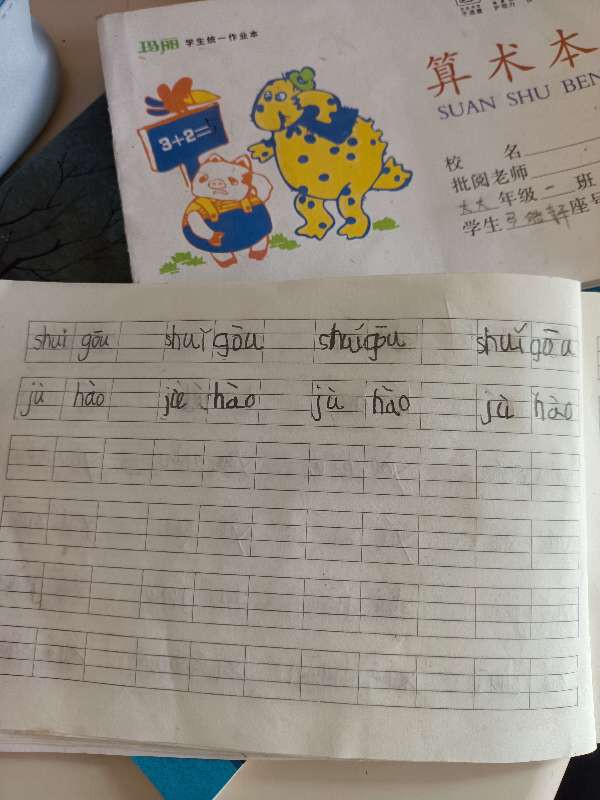 玛丽 学生统一作业本
算术本
SUAN SHU BEN
3+2=
校 名
批阅老师
年级一班
学生 座号
shuǐ gōu shuǐ gōu shuǐ gōu shuǐ gōu
jù hào jù hào jù hào jù hào